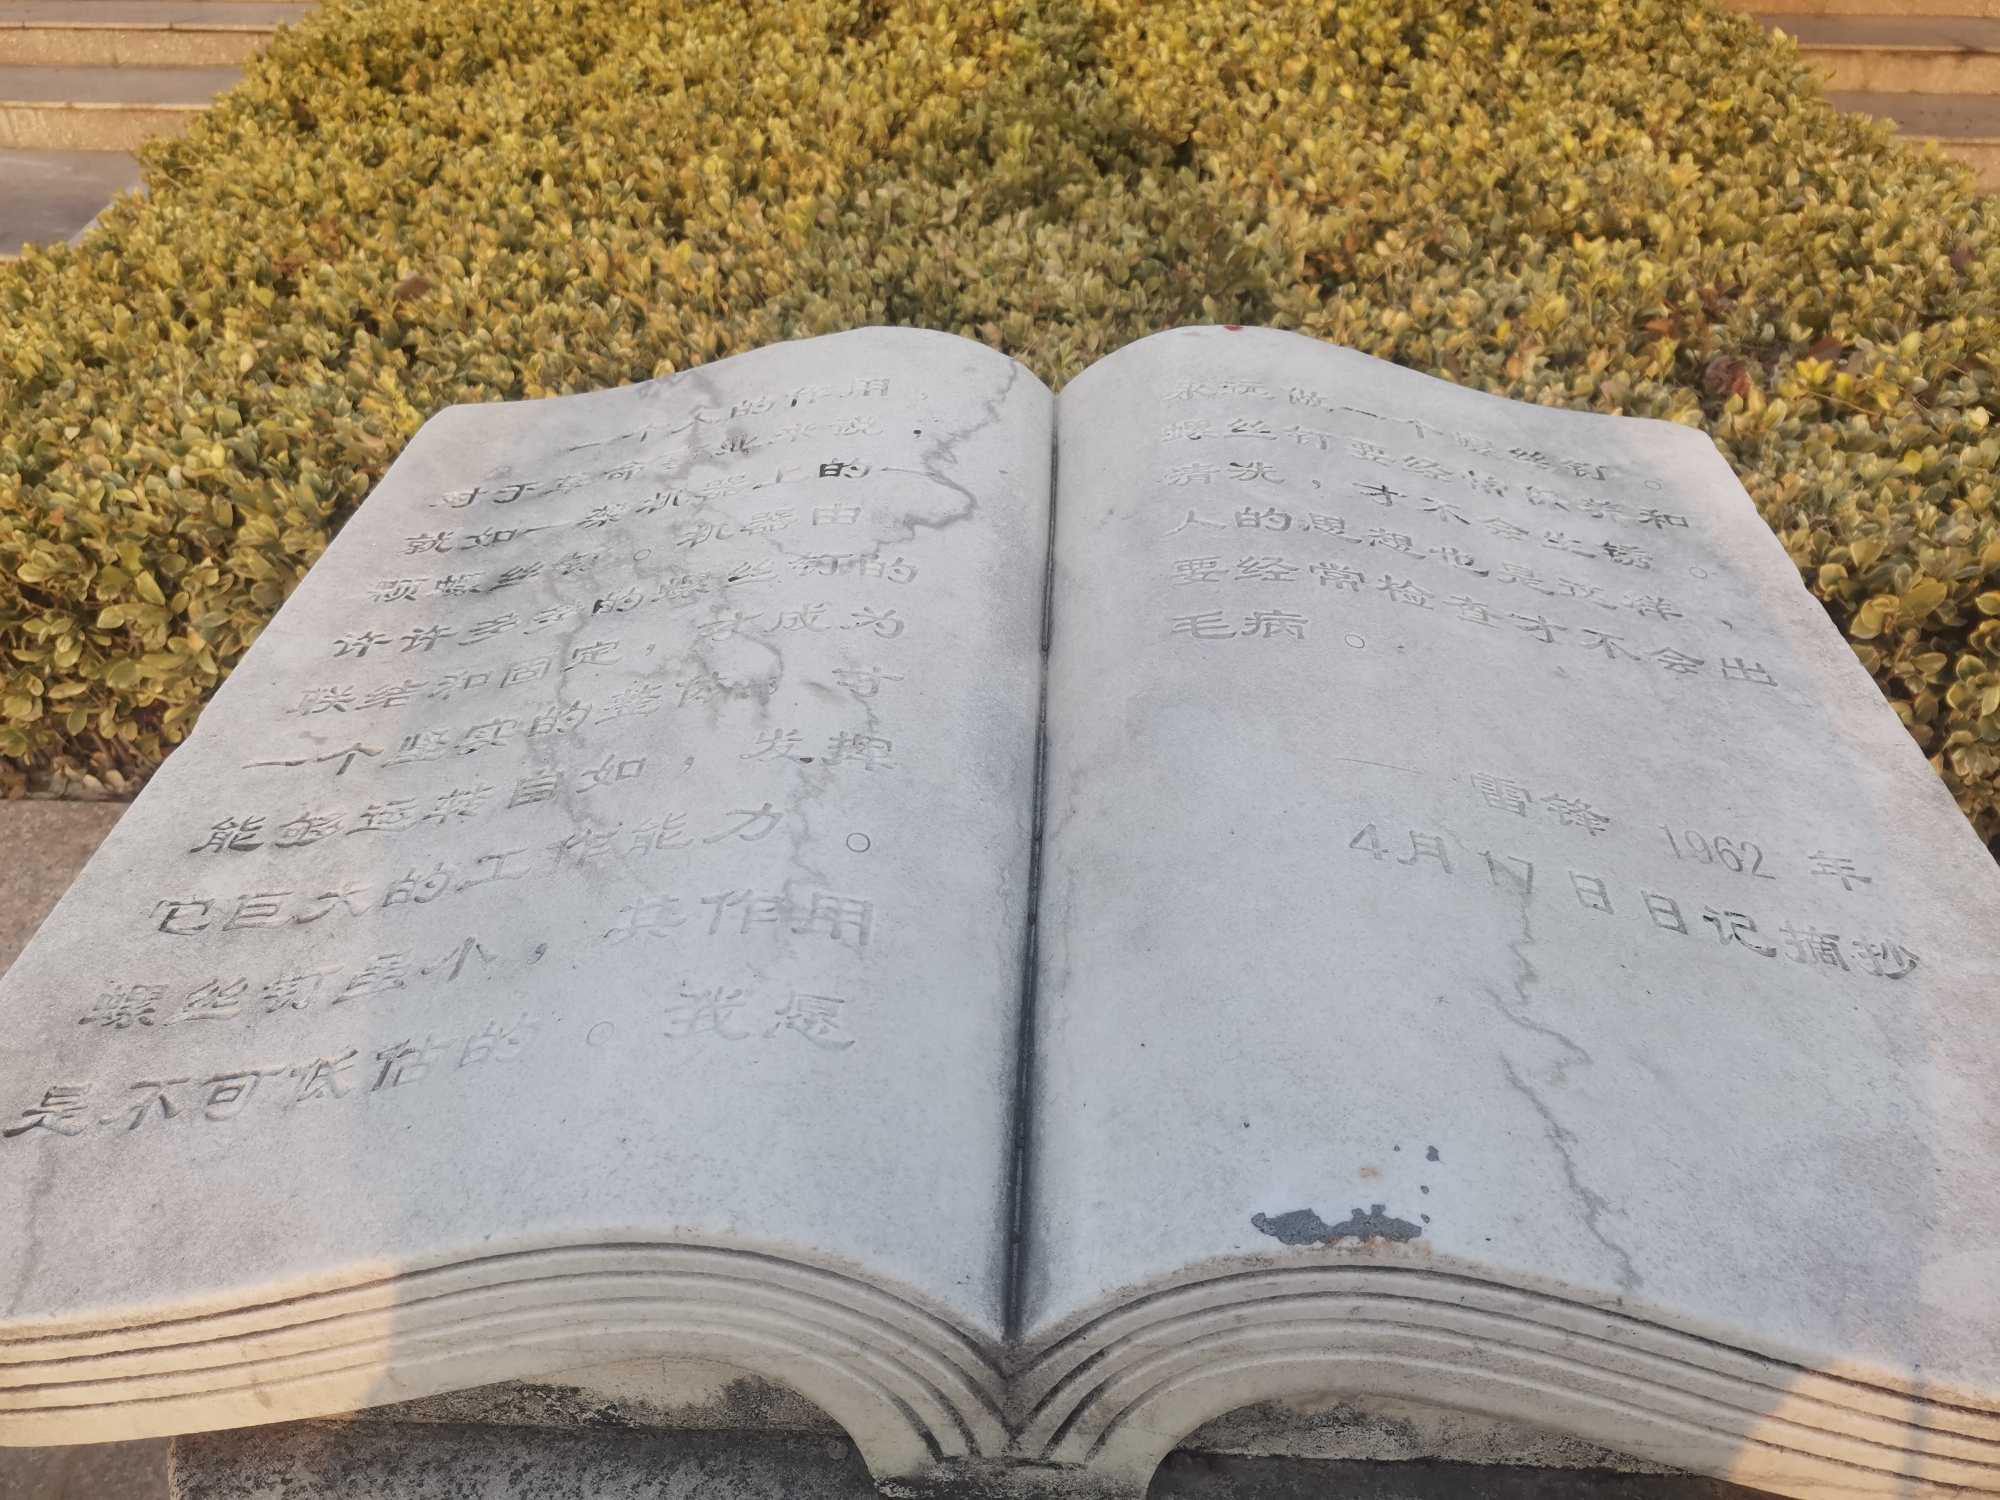 一个人的作用，
对于革命事业来说，
就如一架机器上的一
颗螺丝钉。机器由
许许多多的螺丝钉的
联结和固定，才成为
一个坚实的整体，才
能够运转自如，发挥
它巨大的工作能力。
螺丝钉虽小，其作用
是不可低估的。我愿
永远做一个螺丝钉。
螺丝钉要经常保养和
清洗，才不会生锈。
人的思想也是这样，
要经常检查才不会出
毛病。
——雷锋 1962 年
4月17日日记摘抄